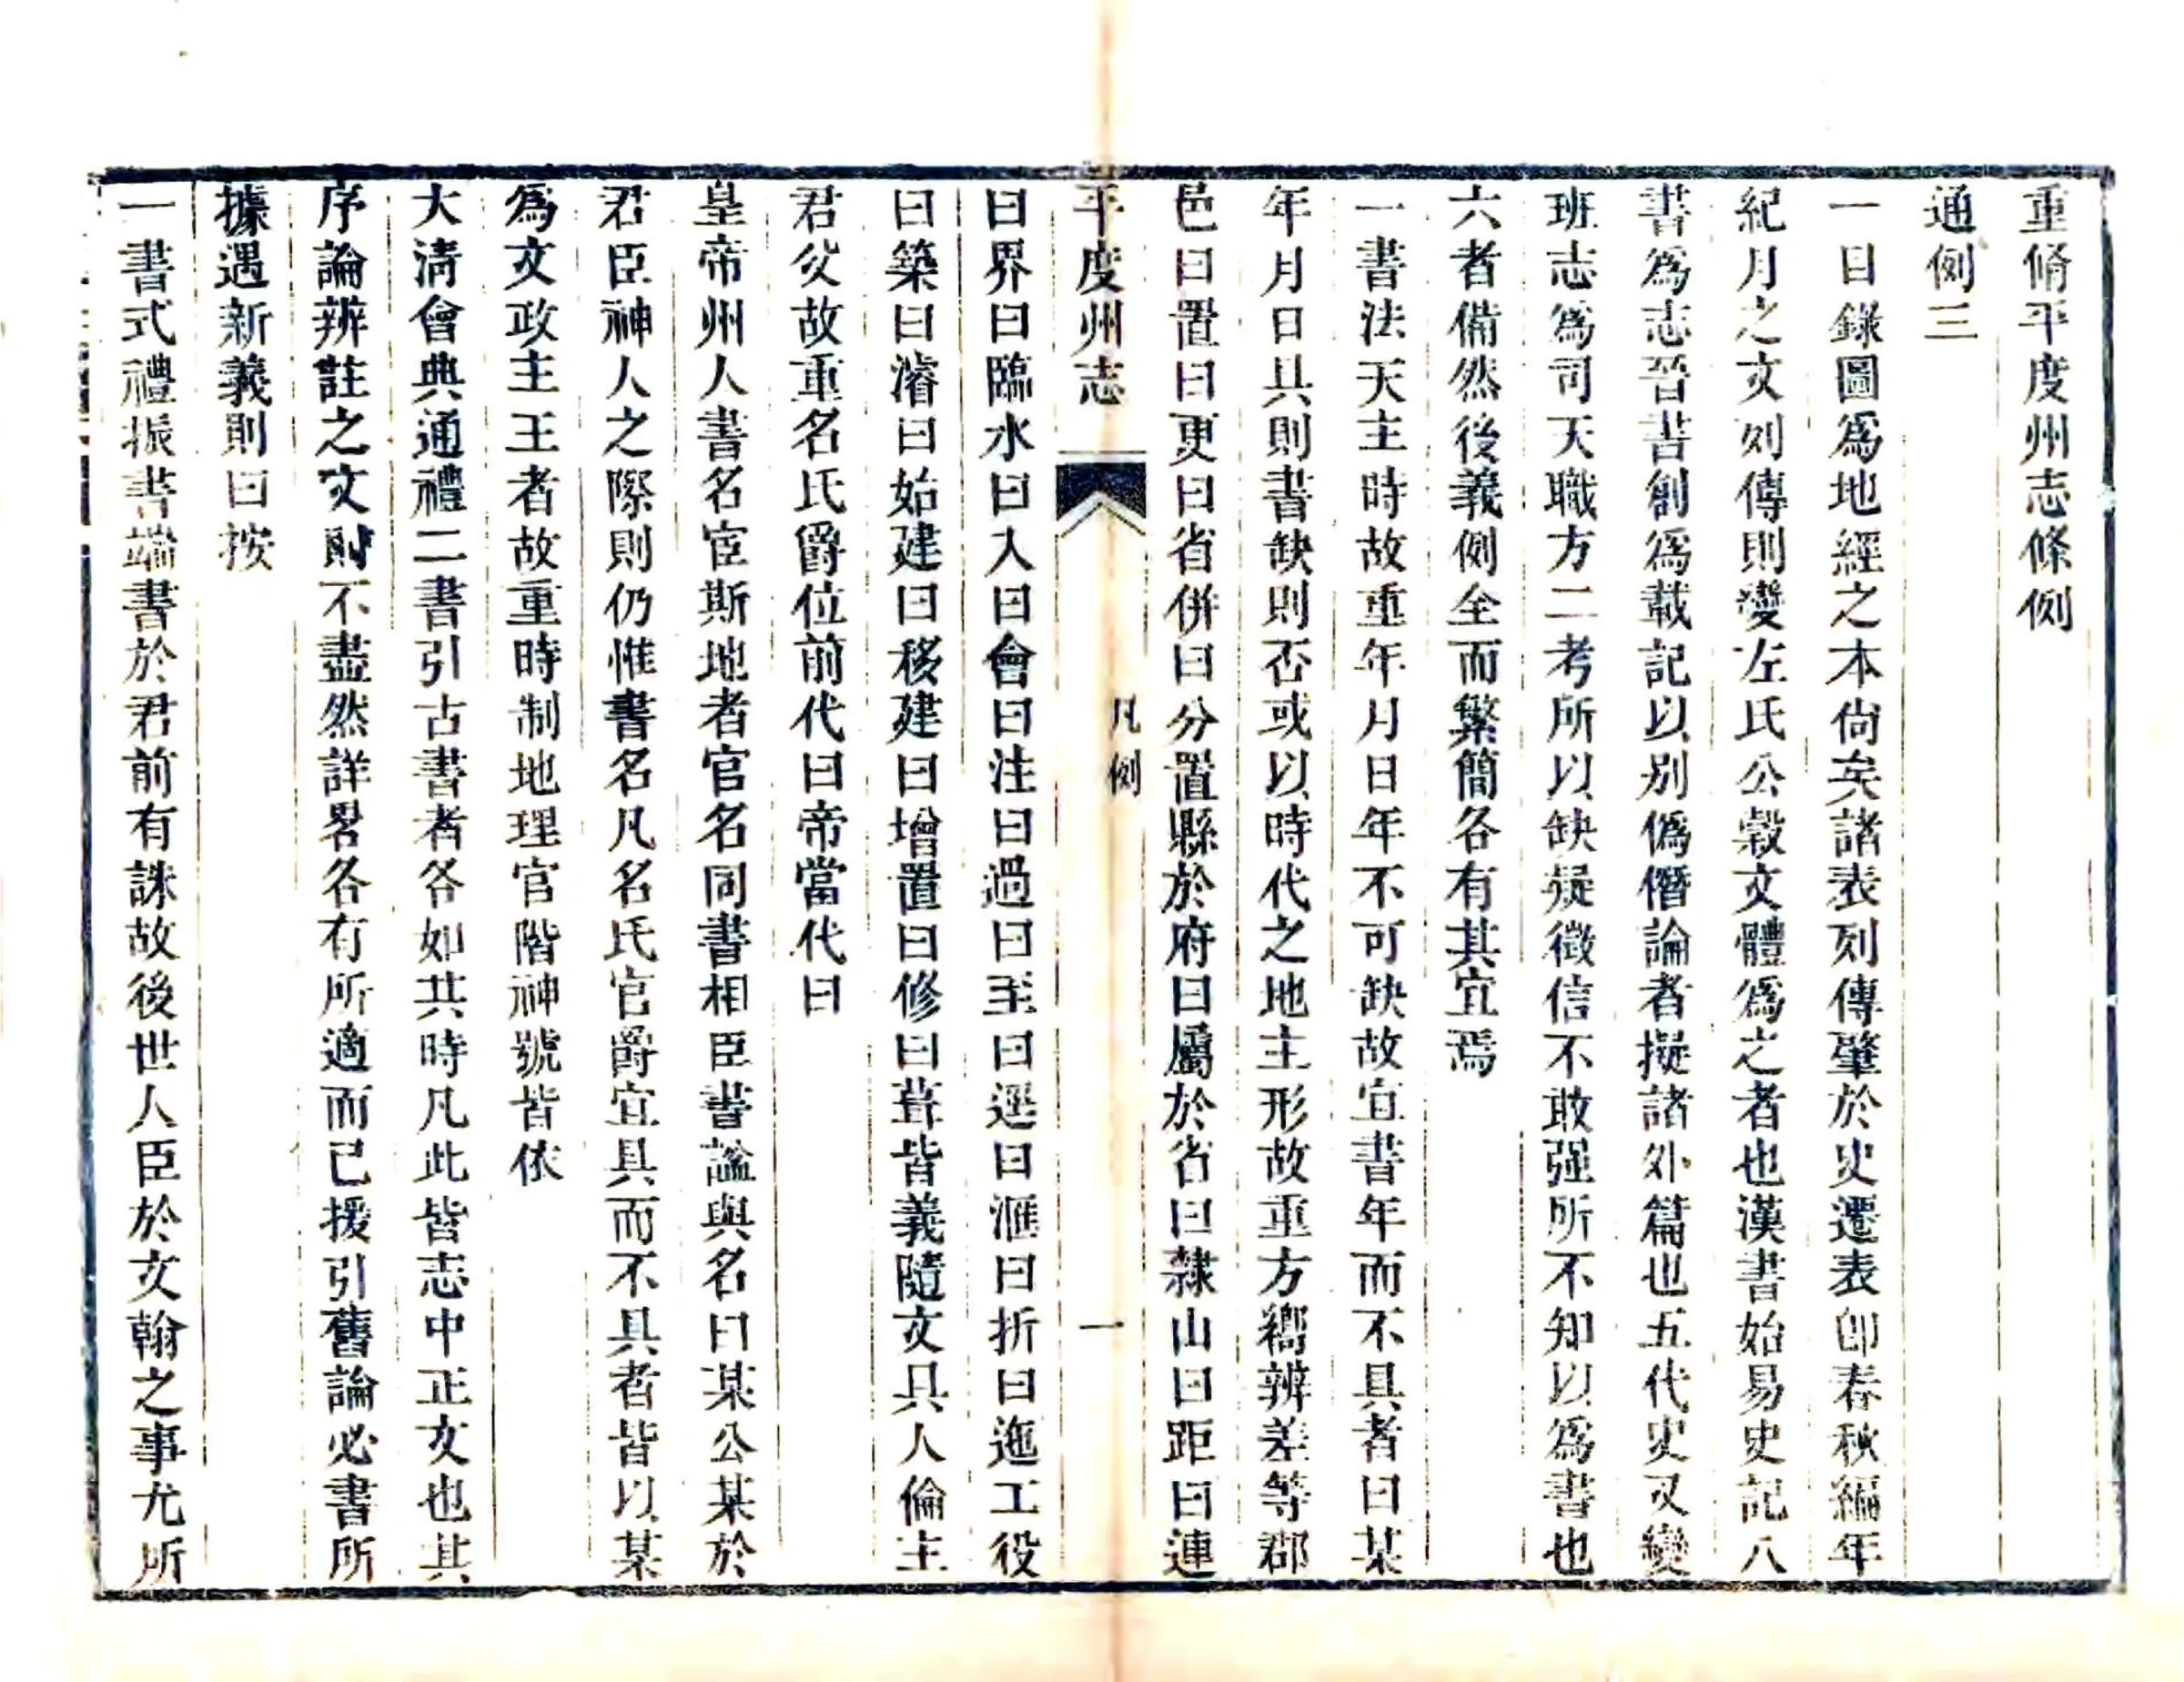 重脩平度州志條例
通例三
一目錄圖爲地經之本尙矣諸表列傳肇於史遷表卽春秋編年
紀月之文列傳則變左氏公榖文體爲之者也漢書始易史記八
書爲志晉書創爲載記以别僞僭論者擬諸外篇也五代史又變
班志爲司天職方二考所以缺疑徵信不敢强所不知以爲書也
六者備然後義例全而繁簡各有其宜焉
一書法天主時故重年月日年不可缺故宜書年而不具者曰某
年月日具則書缺則否或以時代之地主形故重方嚮辨差等郡
邑曰置曰更曰省併曰分置縣於府曰屬於省曰隸山曰距曰連
平度州志
凡例
一
曰界曰臨水曰入曰會曰注曰過曰至曰逕曰滙曰折曰迤工役
曰築曰濬曰始建曰移建曰增置曰修曰葺皆義隨文具人倫主
君父故重名氏爵位前代曰帝當代曰
皇帝州人書名宦斯地者官名同書相臣書謚與名曰某公某於
君臣神人之際則仍惟書名凡名氏官爵宜具而不具者皆以某
爲文政主王者故重時制地理官階神號皆依
大淸會典通禮二書引古書者各如其時凡此皆志中正文也其
序論辨註之文則不盡然詳畧各有所適而已援引舊論必書所
據遇新義則曰按
一書式禮振書端書於君前有誅故後世人臣於文翰之事尤所